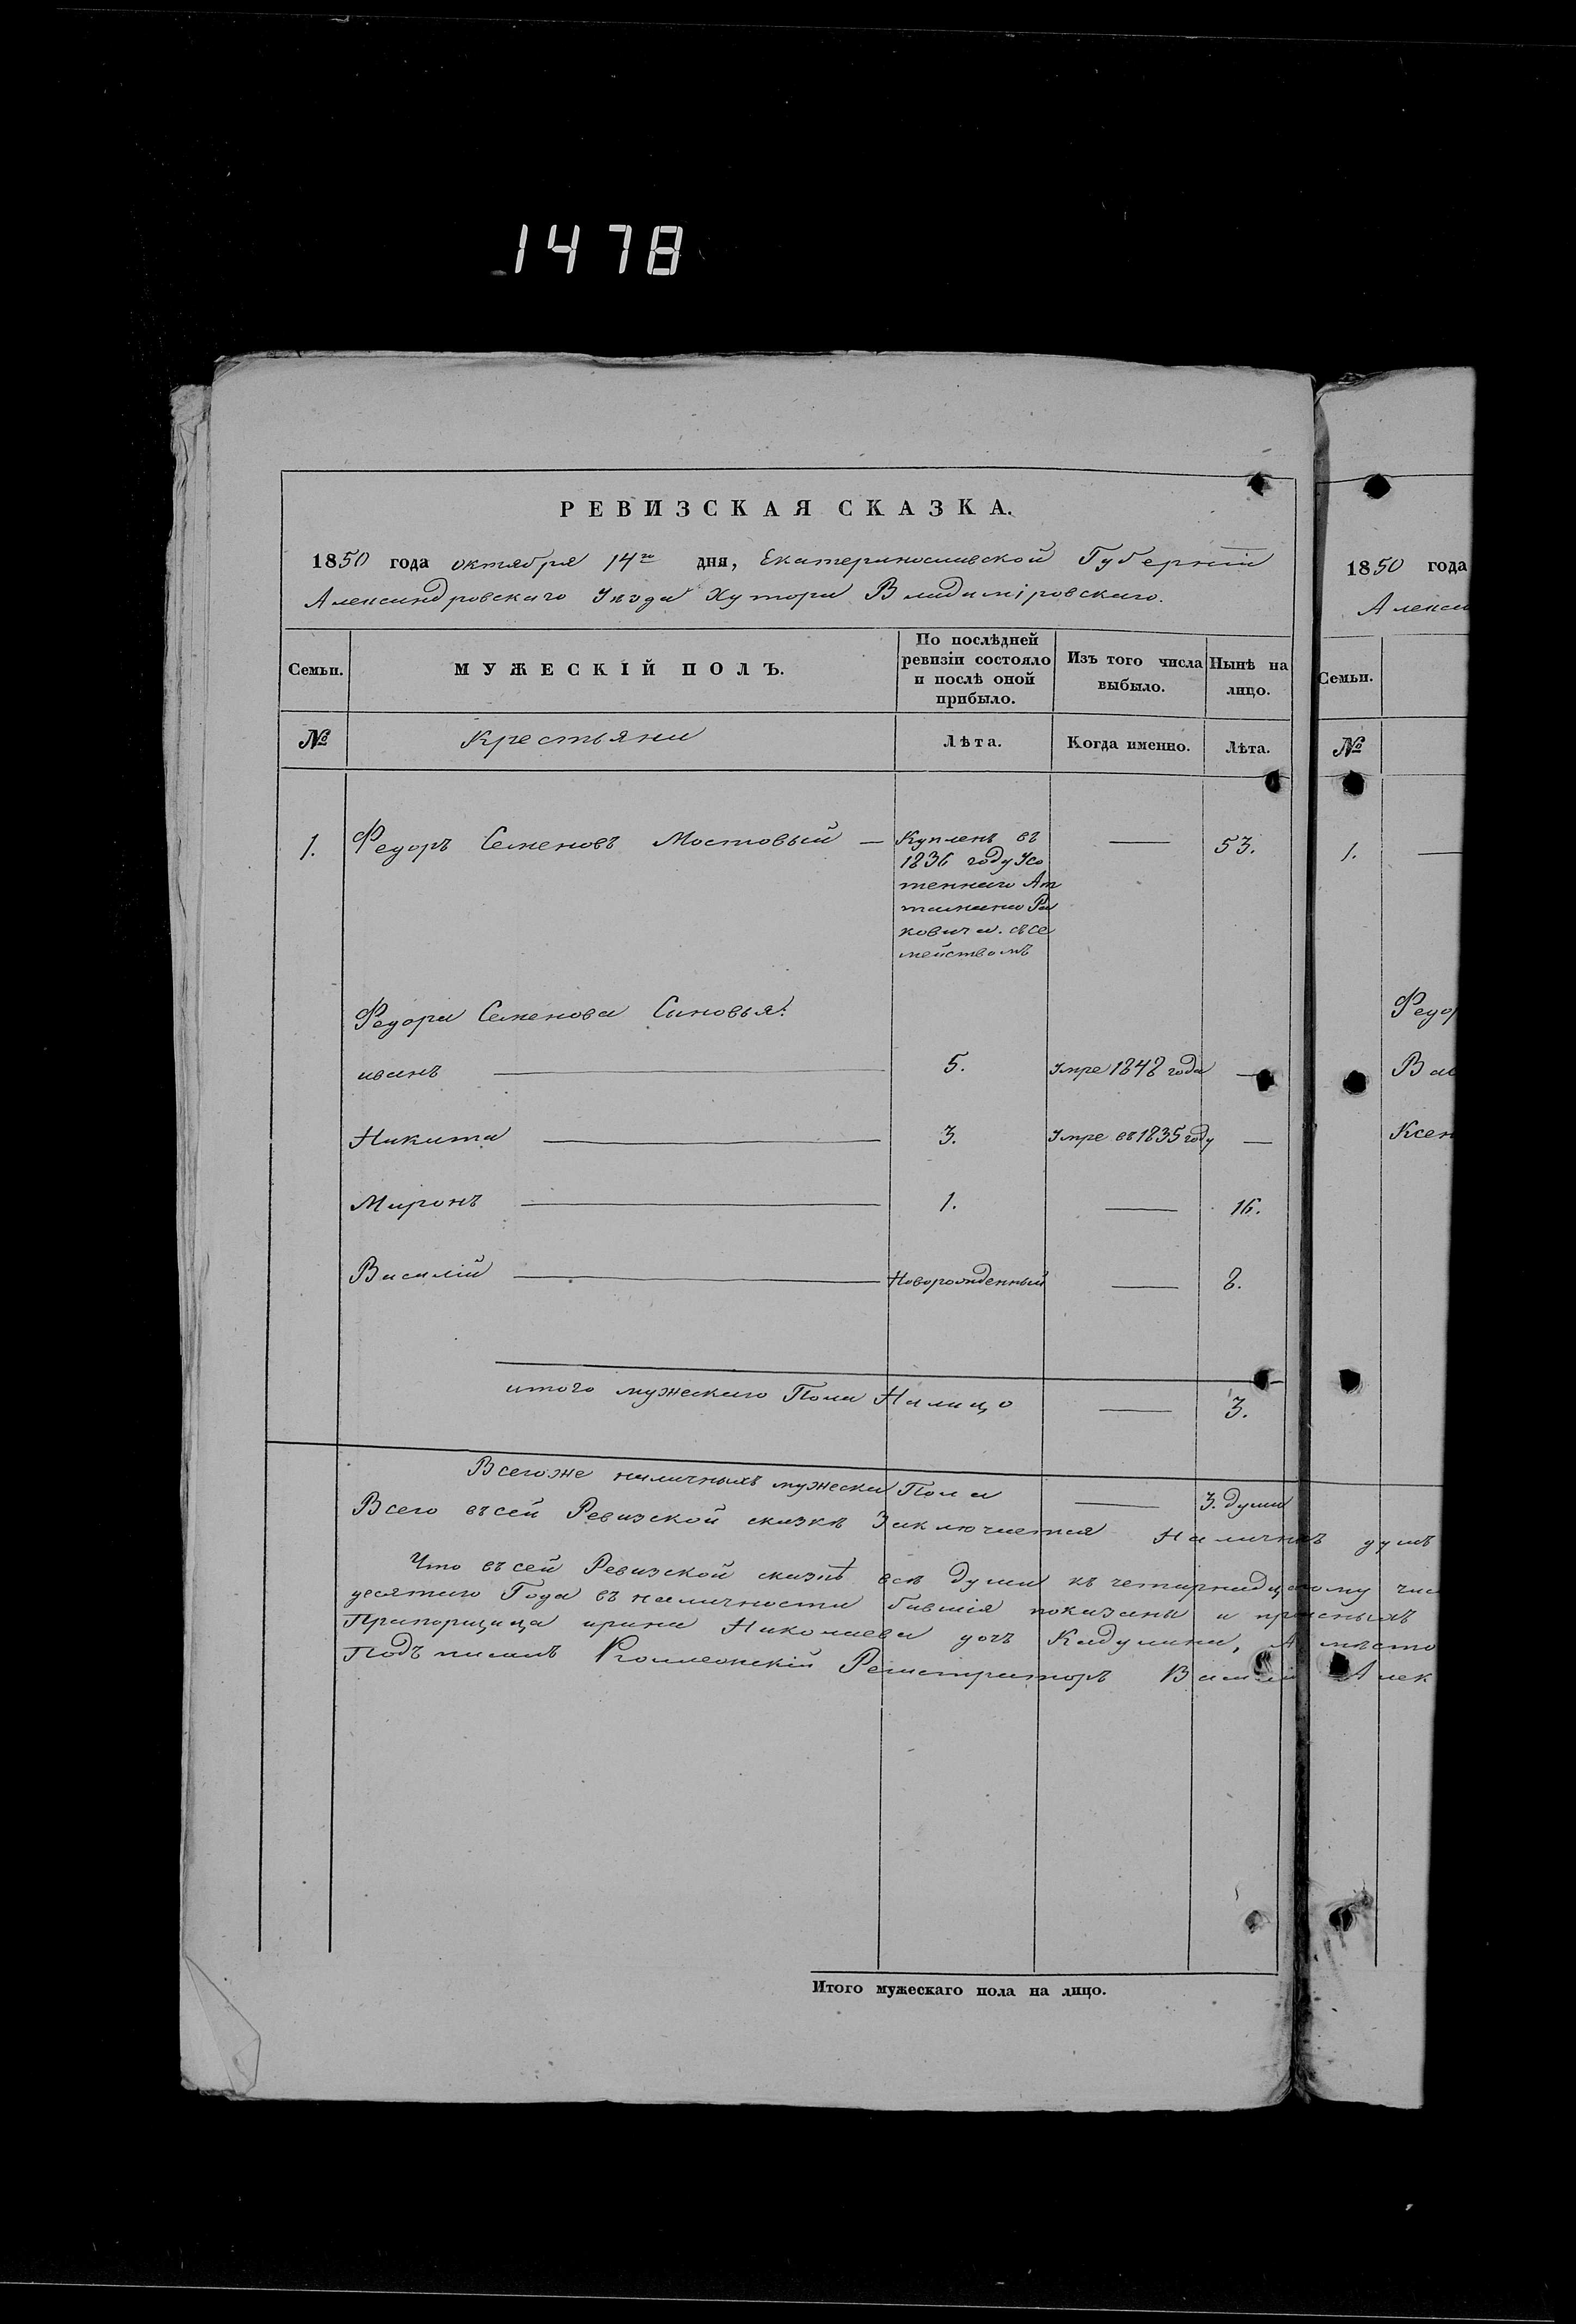 1478
РЕВИЗСКАЯ СКАЗКА.
1850 года октября 14го дня, Екатеринославской Губернiи
Александровскаго Уѣзда Хутора Владимiровскаго.
Семьи. МУЖЕСКIЙ ПОЛЪ. По послѣдней ревизiи состояло и послѣ оной прибыло. Изъ того числа выбыло. Нынѣ на лицо.
№ Крестьяни Лѣта. Когда именно. Лѣта.
1. Федоръ Семеновъ Мостовый — Купленъ въ — 53.
1836 году
кович а. съ се
мействомъ
Федора Семенова Синовья:
иванъ — 5. Умре 1848 года —
Никита — 3. Умре въ 1835 году —
Миронъ — 1. — 16.
Василiй — Новорожденный — 8.
итого мужескаго Пола На лицо — 3.
Всего же наличныхъ мужеска Пола — 3. души
Всего въ сей Ревизской сказкѣ Заключается Наличнхъ душъ
Что въ сей Ревизской сказкѣ всѣ души къ четырнадцатому чис
десятаго Года въ наличности бывшiя показаны и
Прапорщица ирина Николаева дочъ Кадулина, А мѣсто
Подъписалъ Коллежскiй Регистраторъ Василiй Алек
Итого мужескаго пола на лицо.
1850 года
Алекса
Семьи.
№
1. —
Федор
Вас
Ксен